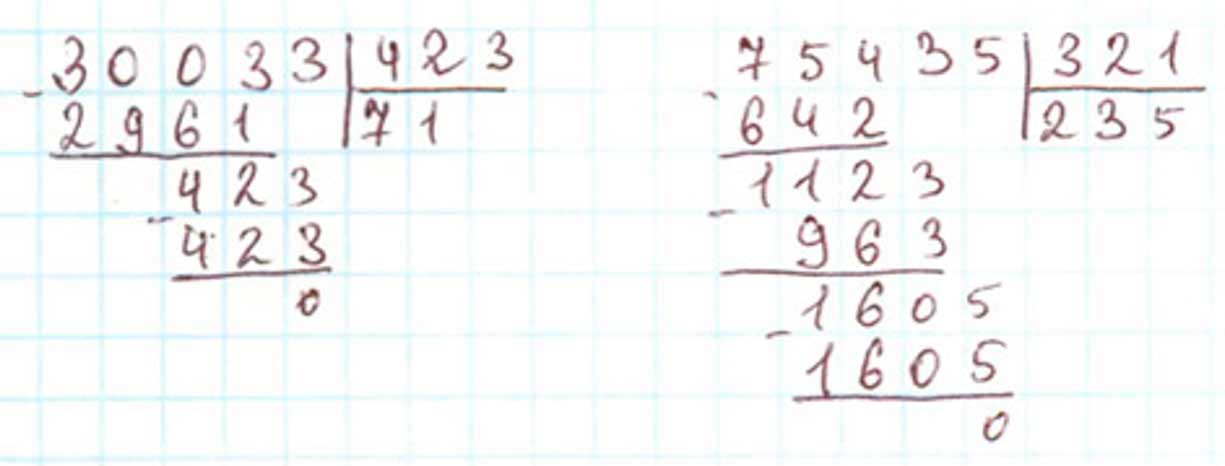 30033 423
- 2961 71
423
- 423
0
75435 321
- 642 235
1123
- 963
1605
- 1605
0